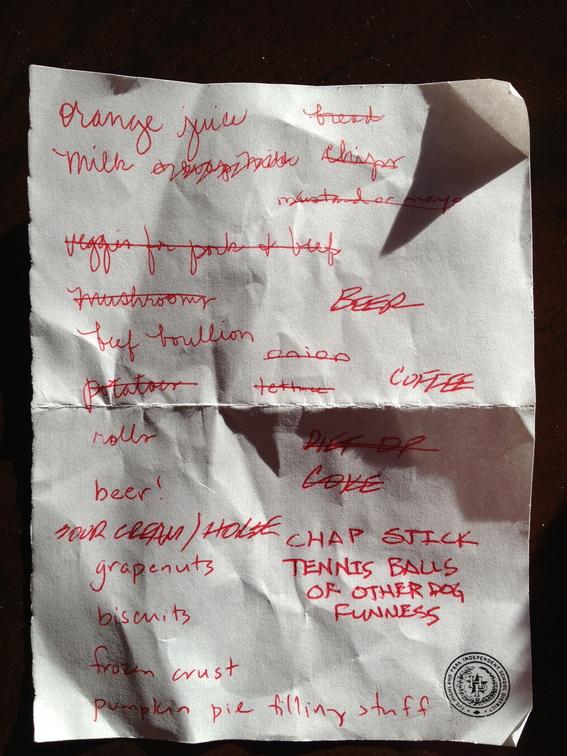 orange juice
bread
milk
chips
mustard or mayo
veggies for pork & beef
mushrooms
BEER
beef boullion
onion
potatoes
lettuce
COFFEE
rolls
DIET DR
COKE
beer!
SOUR CREAM / HORSE
CHAP STICK
grapenuts
TENNIS BALLS
OF OTHER DOG
FUNNESS
biscuits
frozen crust
pumpkin pie filling stuff
HIGHLAND PARK INDEPENDENT SCHOOL DISTRICT